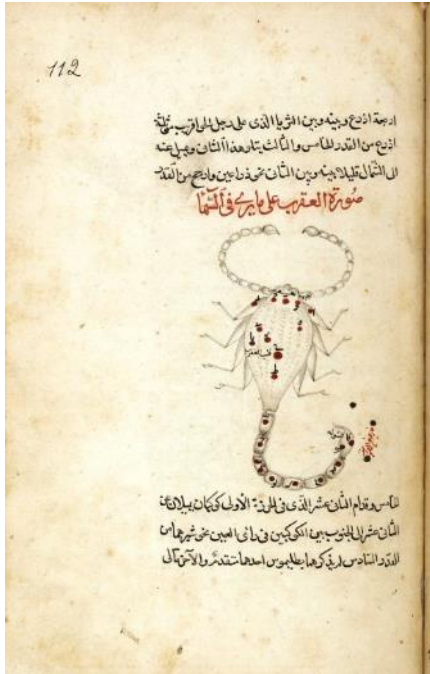 112
اربعة اذرع وبينه وبين الذى على رجل اقرب ثلثة
اذرع من القدر الخامس والثالث يتلو هذا الثانى ويميل عنه
الى الشمال قليلا بينه وبين الثانى نحو ذراعين وارجح من القدر
صورة العقرب على ما يرى فى السما
قلب العقرب
الخامس وقدام الثانى عشر الذى فى الخرزة الاولى كوكبان يميلان عن
الثانى عشر الى الجنوب بين الكوكبين فى رأى العين نحو شبر هما من
القدر السادس لم يذكرهما بطلميوس احدهما متقدم والآخر تالى